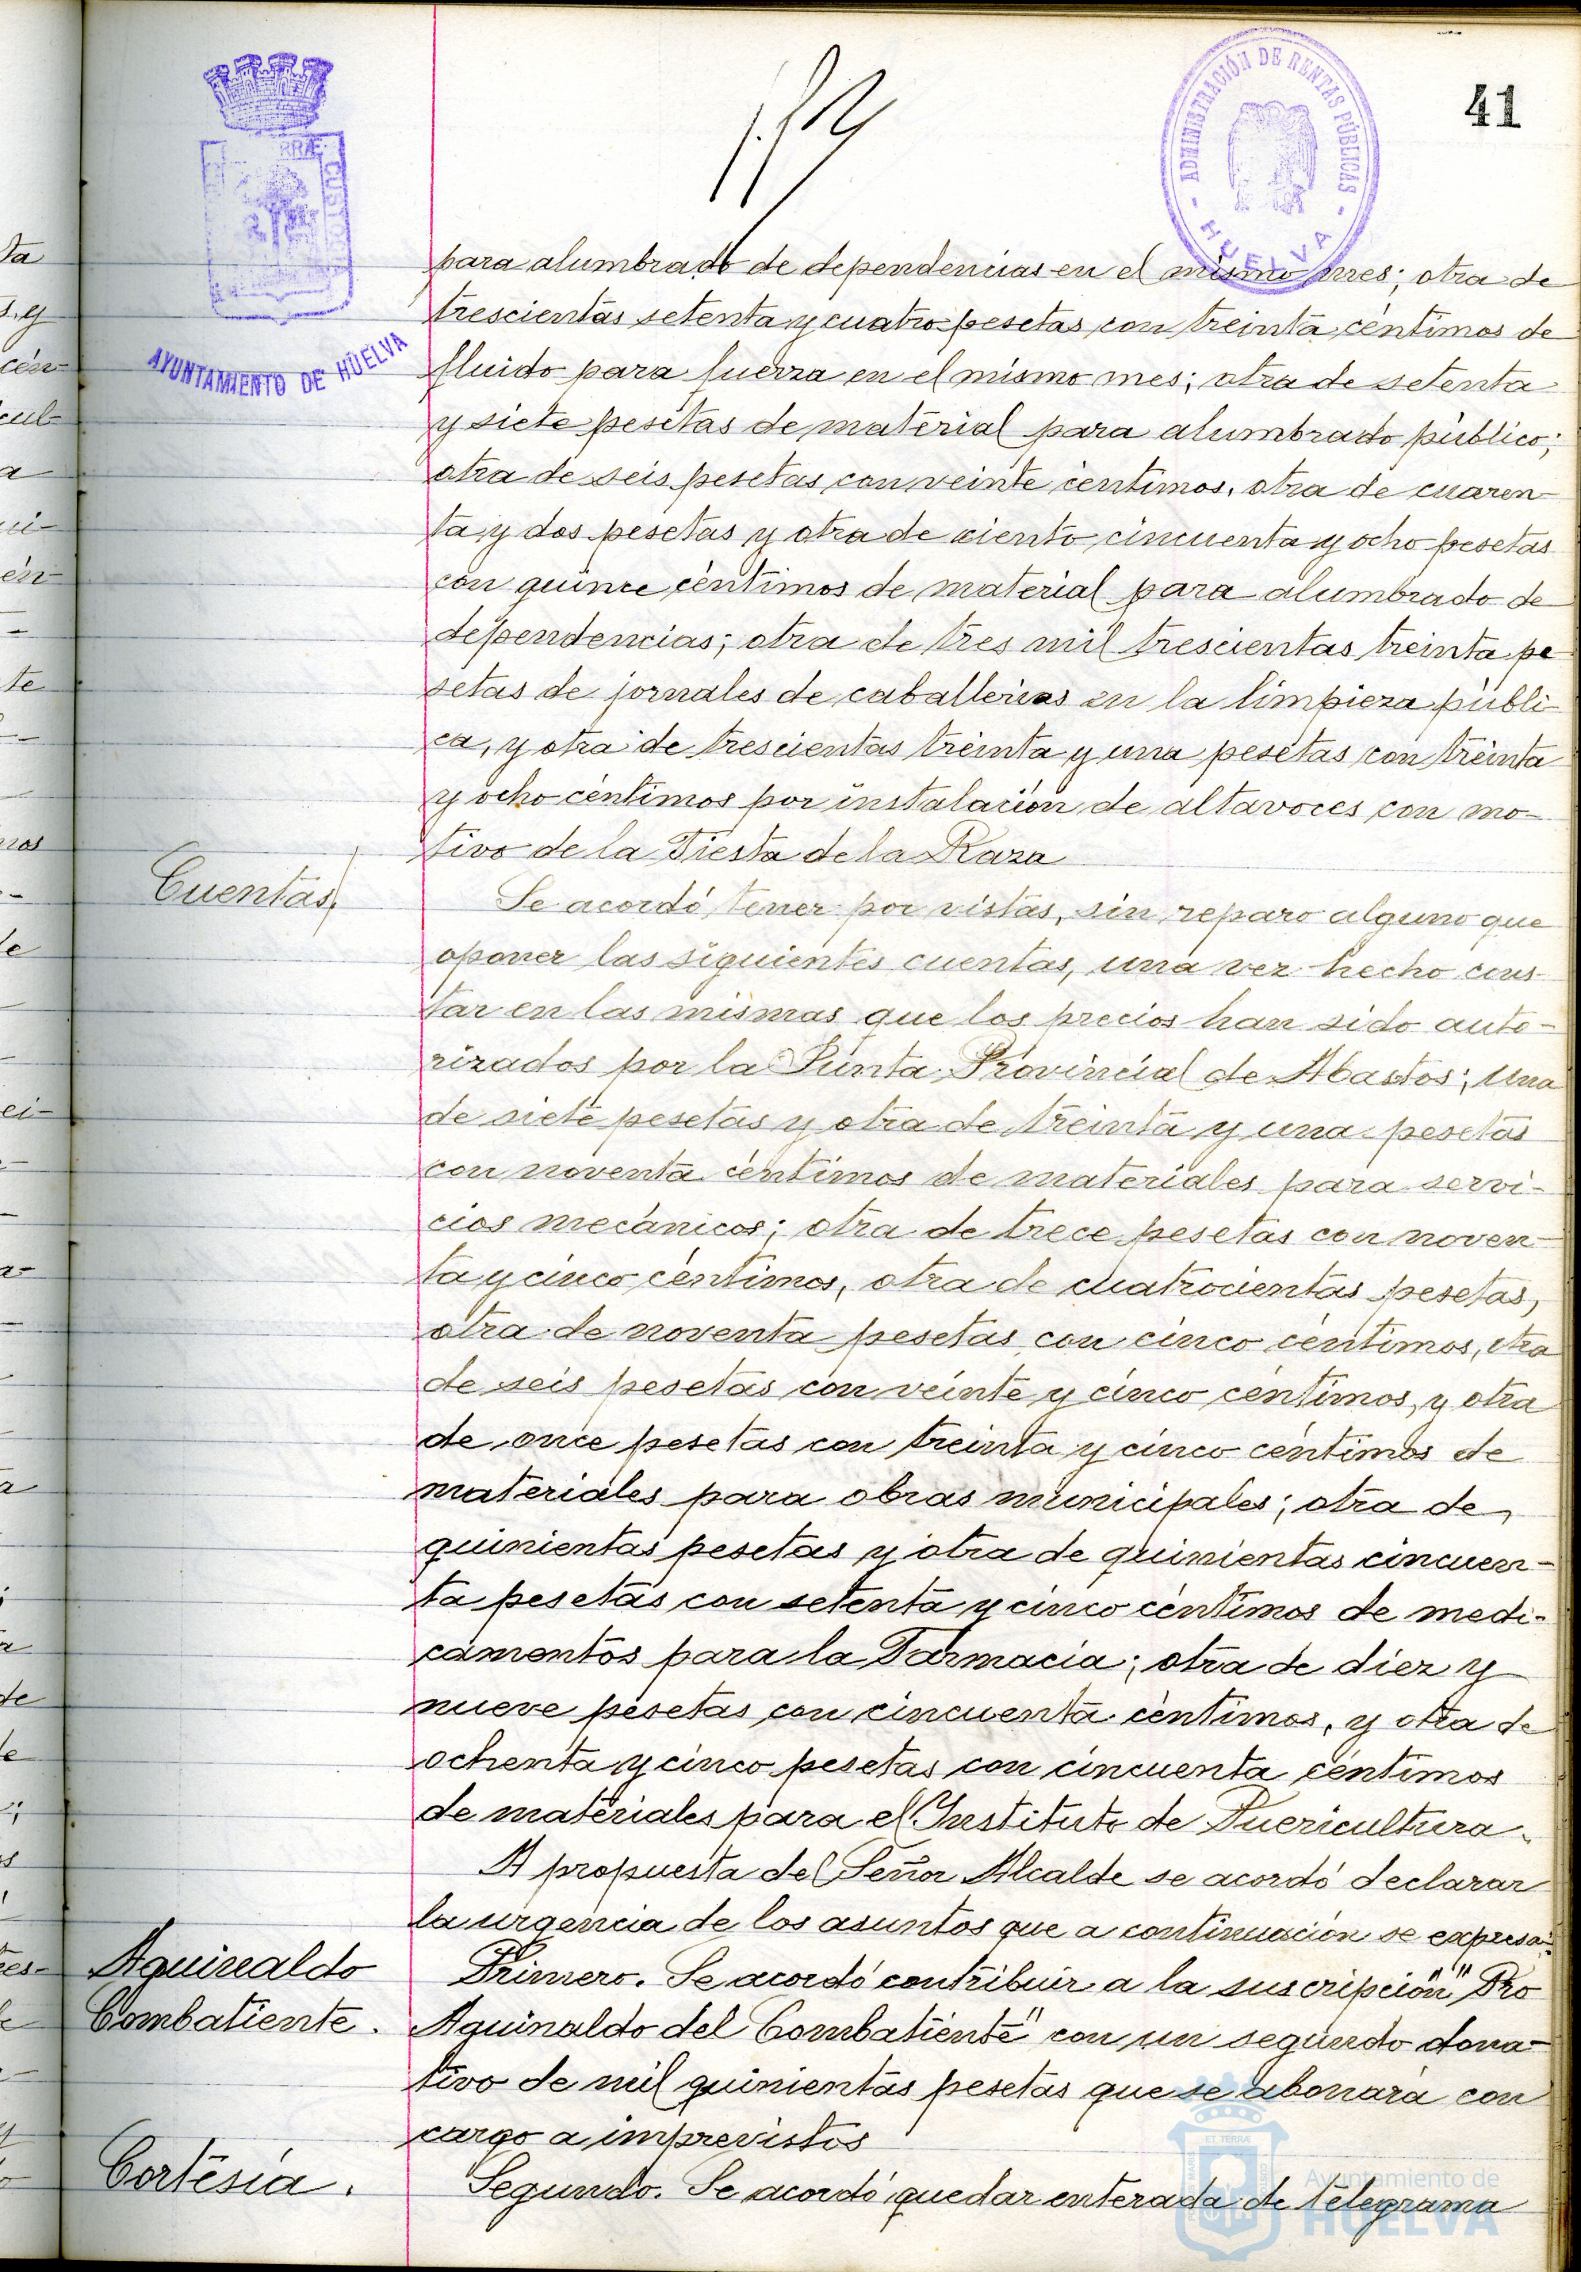 41
ADMINISTRACIÓN DE RENTAS PÚBLICAS
- HUELVA -
RRÆ CUSTO
AYUNTAMIENTO DE HUELVA
para alumbrado de dependencias en el mismo mes; otra de
trescientas setenta y cuatro pesetas con treinta céntimos de
fluido para fuerza en el mismo mes; otra de setenta
y siete pesetas de material para alumbrado público;
otra de seis pesetas con veinte céntimos, otra de cuaren-
ta y dos pesetas y otra de ciento cincuenta y ocho pesetas
con quince céntimos de material para alumbrado de
dependencias; otra de tres mil trescientas treinta pe
setas de jornales de caballerias en la limpieza públi-
ca, y otra de trescientas treinta y una pesetas con treinta
y ocho céntimos por instalación de altavoces con mo-
tivo de la Fiesta de la Raza
Cuentas
Se acordó tener por vistas, sin reparo alguno que
oponer las siguientes cuentas, una vez hecho cons-
tar en las mismas que los precios han sido auto-
rizados por la Junta Provincial de Abastos; una
de siete pesetas y otra de treinta y una pesetas
con noventa céntimos de materiales para servi-
cios mecánicos; otra de trece pesetas con noven-
ta y cinco céntimos, otra de cuatrocientas pesetas,
otra de noventa pesetas con cinco céntimos, otra
de seis pesetas con veinte y cinco céntimos, y otra
de once pesetas con treinta y cinco céntimos de
materiales para obras municipales; otra de
quinientas pesetas y otra de quinientas cincuen-
ta pesetas con setenta y cinco céntimos de medi-
camentos para la Farmacia; otra de diez y
nueve pesetas con cincuenta céntimos, y otra de
ochenta y cinco pesetas con cincuenta céntimos
de materiales para el Instituto de Puericultura.
A propuesta del Señor Alcalde se acordó declarar
la urgencia de los asuntos que a continuación se expresa:
Aguinaldo
Combatiente.
Primero. Se acordó contribuir a la suscripción "Pro
Aguinaldo del Combatiente" con un segundo dona-
tivo de mil quinientas pesetas que se abonará con
cargo a imprevistos
Cortesía.
Segundo. Se acordó quedar enterada de telegrama
Ayuntamiento de
HUELVA